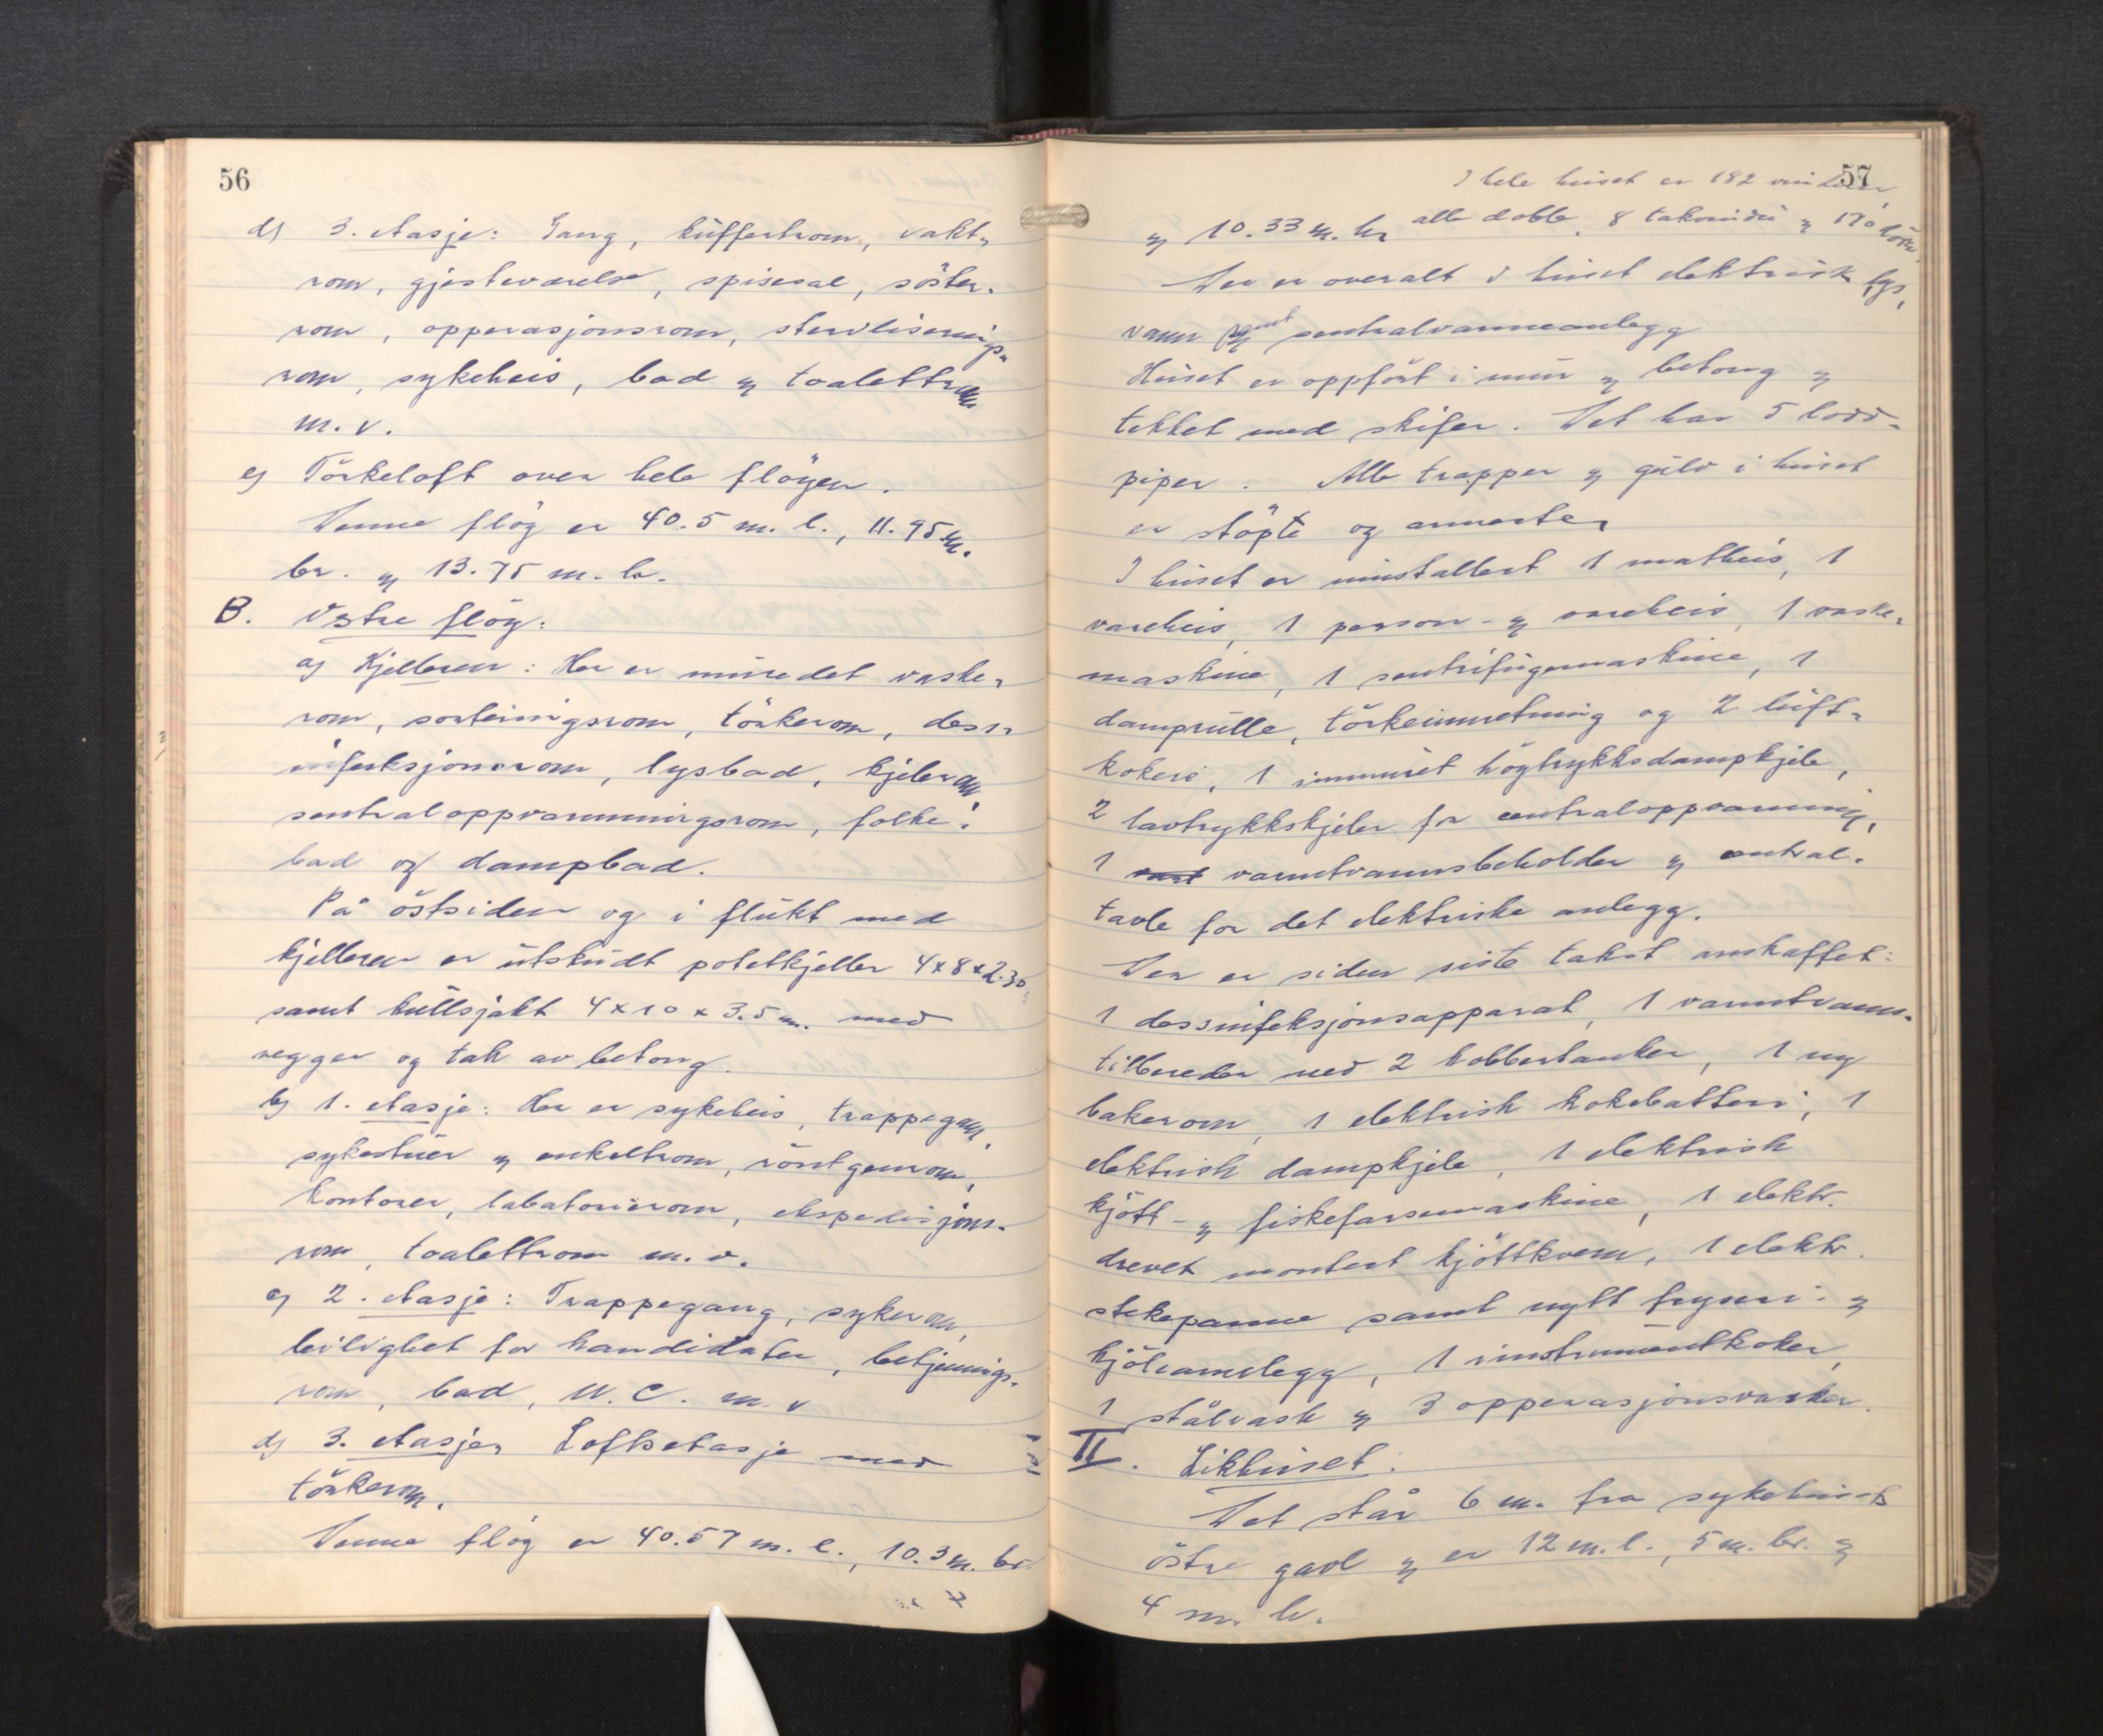 56
d) 3. etasje: Gang, kuffertrom, vakt-
rom, gjesteværelse, spisesal, söster-
rom, opperasjonsrom, steriliserings-
rom, sykeheis, bad og toalettrom
m.v.
e) Törkeloft over hele flöyen.
Denne flöy er 40.5 m. l., 11.95 m.
br. og 13.75 m. h.
B. Östre flöy:
a) Kjelleren: Her er innredet vaske-
rom, sorteringsrom, törkerom, dess-
infeksjonsrom, lysbad, kjelerom
sentraloppvarmningsrom, folke-
bad og dampbad.
På östsiden og i flukt med
kjelleren er utskudt potetkjeller 4x8x2.30
samt kullsjakt 4x10x3.5 m. med
vegger og tak av betong.
b) 1. etasje: Her er sykeheis, trappegang,
sykestuer og enkeltrom, röntgenrom,
kontorer, labatorierom, ekspedisjons-
rom, toalettrom m.v.
c) 2. etasje: Trappegang, sykerom,
leilighet for kandidater, betjenings-
rom, bad, W.C. m.v
d) 3. etasje, Loftsetasje med
törkerom.
Denne flöy er 40.57 m. l., 10.3 m. br.
57
I hele huset er 182 vinduer,
alle doble, 8 takvindu og 170 dörer,
og 10.33 m. h.
Der er overalt i huset elektrisk lys,
vann samt sentralvarmeanlegg
Huset er oppfört i mur og betong og
tekket med skifer. Det har 5 lodd-
piper. Alle trapper og gulv i huset
er stöpte og armerte.
I huset er innstallert 1 matheis, 1
vareheis, 1 person- og vareheis, 1 vaske-
maskine, 1 sentrifugemaskine, 1
damprulle, törkeinnretning og 2 luft-
kokeri, 1 innmuret höytrykksdampkjele,
2 lavtrykkskjeler for centraloppvarming,
1 varmtvannsbeholder og central-
tavle for det elektriske anlegg.
Der er siden siste takst anskaffet:
1 dessinfeksjonsapparat, 1 varmtvanns-
tilbereder med 2 kobbertanker, 1 ny
bakerovn, 1 elektrisk kokebatteri, 1
elektrisk dampkjele, 1 elektrisk
kjött- og fiskefarsemaskine, 1 elektr.
drevet montert kjöttkvern, 1 elektr.
stekepanne samt nytt fryseri- og
kjöleanlegg, 1 instrumentkoker,
1 stålvask og 3 opperasjonsvasker.
II. Likhuset.
Det står 6 m. fra sykehusets
östre gavl og er 12 m. l., 5 m. br. og
4 m. h.